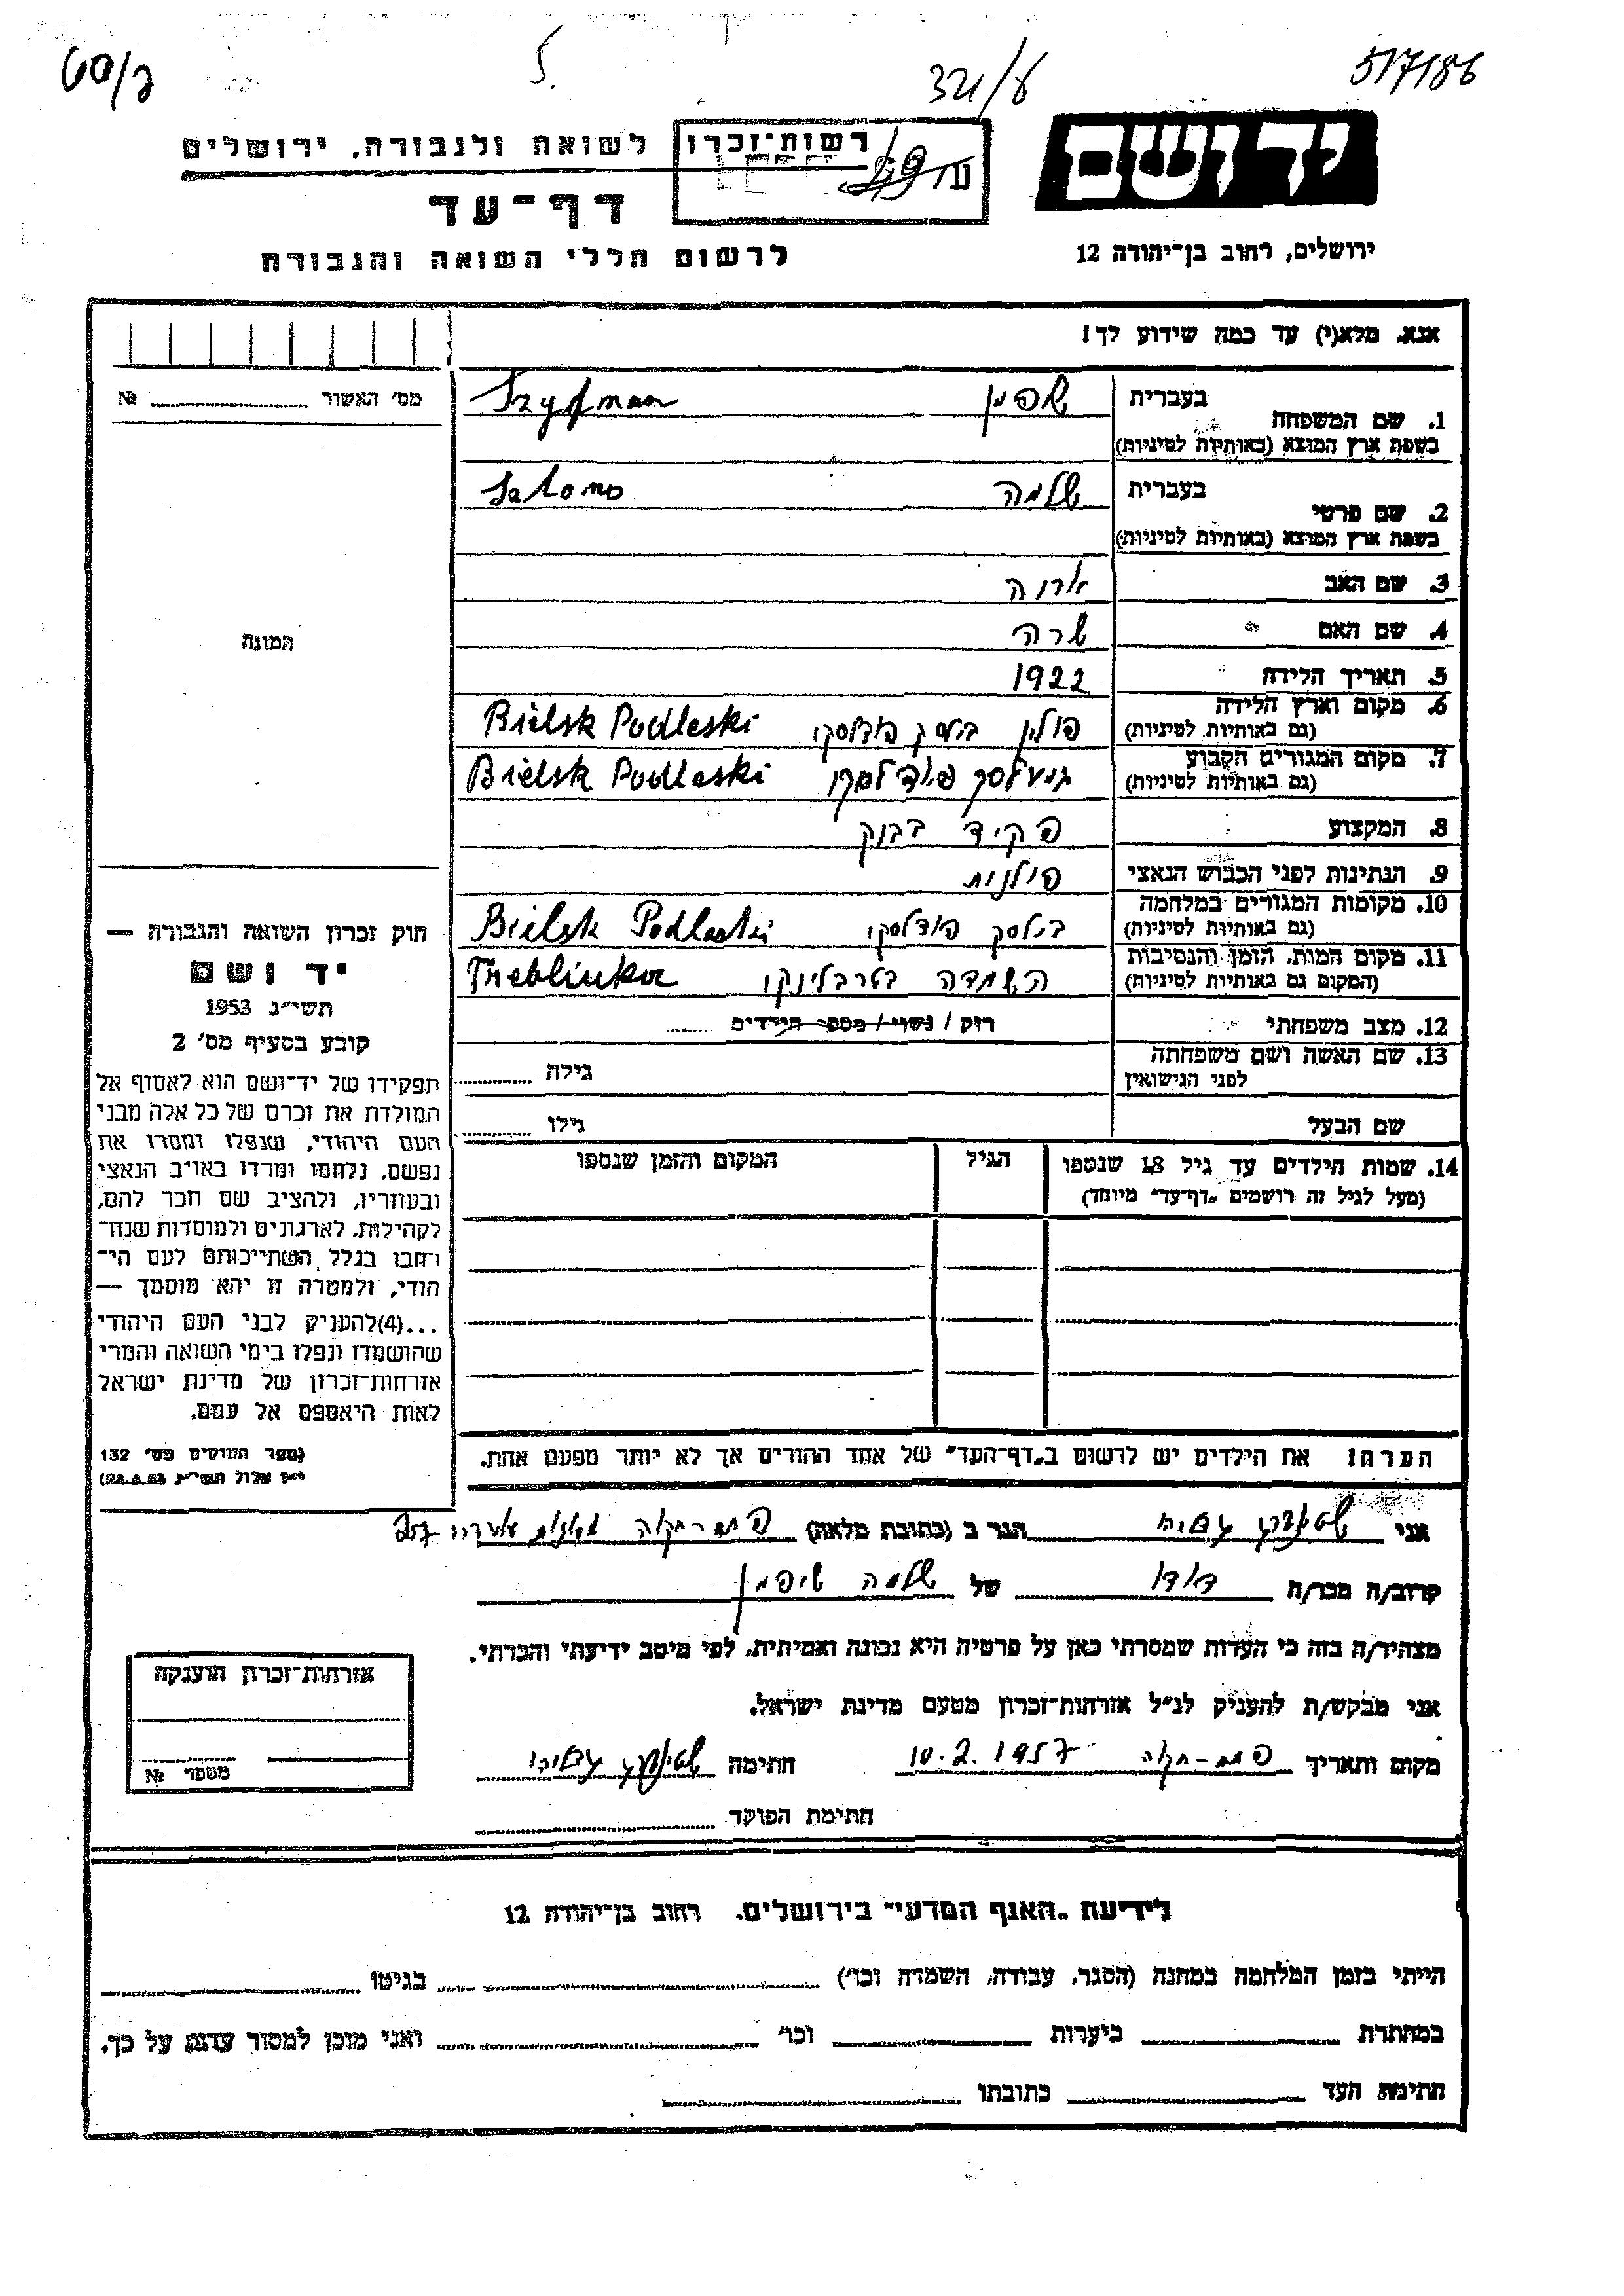 517186
5.
יד ושם
רשות־זכרון לשואה ולגבורה, ירושלים
דף־עד
לרשום חללי השואה והגבורה
ירושלים, רחוב בן־יהודה 12
אנא, מלא(י) עד כמה שידוע לך!
מס׳ האשור № 
1. שם המשפחה בעברית שפמן Szyfman
בשפת ארץ המוצא (באותיות לטיניות)
2. שם פרטי בעברית שלמה Salomo
בשפת ארץ המוצא (באותיות לטיניות)
3. שם האב
4. שם האם שרה
5. תאריך הלידה 1922
6. מקום וארץ הלידה פולין בילסק פודלסקי Bielsk Podleski
(גם באותיות לטיניות)
7. מקום המגורים הקבוע Bielsk Podleski
(גם באותיות לטיניות)
8. המקצוע פקיד בבנק
9. הנתינות לפני הכבוש הנאצי פולנית
10. מקומות המגורים במלחמה בילסק פודלסקי Bielsk Podlaski
(גם באותיות לטיניות)
11. מקום המות, הזמן והנסיבות השמדה בטרבלינקי Trebliuka
(המקום גם באותיות לטיניות)
12. מצב משפחתי רוק / נשוי / מספר הילדים
13. שם האשה ושם משפחתה גילה
לפני הנישואין
שם הבעל גילו
14. שמות הילדים עד גיל 18 שנספו הגיל המקום והזמן שנספו
(מעל לגיל זה רושמים „דף־עד” מיוחד)
הערה! את הילדים יש לרשום ב„דף־העד” של אחד ההורים אך לא יותר מפעם אחת.
תמונה
חוק זכרון השואה והגבורה —
יד ושם
תשי״ג 1953
קובע בסעיף מס׳ 2
תפקידו של יד־ושם הוא לאסוף אל
המולדת את זכרם של כל אלה מבני
העם היהודי, שנפלו ומסרו את
נפשם, נלחמו ומרדו באויב הנאצי
ובעוזריו, ולהציב שם וזכר להם,
לקהילות, לארגונים ולמוסדות שנח־
רבו בגלל השתייכותם לעם הי־
הודי, ולמטרה זו יהא מוסמך —
...(4) להעניק לבני העם היהודי
שהושמדו ונפלו בימי השואה והמרי
אזרחות־זכרון של מדינת ישראל
לאות היאספם אל עמם.
(ספר החוקים מס׳ 132
אני הגר ב (כתובת מלאה) פתח־תקוה
קרוב/ה מכר/ה דודו של שלמה שיפמן
מצהיר/ה בזה כי העדות שמסרתי כאן על פרטיה היא נכונה ואמיתית, לפי מיטב ידיעתי והכרתי.
אני מבקש/ת להעניק לנ״ל אזרחות־זכרון מטעם מדינת ישראל.
מקום ותאריך פתח־תקוה 10.2.1957 חתימה
חתימת הפוקד
אזרחות־זכרון הוענקה
מספר №
לידיעת „האגף המדעי” בירושלים, רחוב בן־יהודה 12
הייתי בזמן המלחמה במחנה (הסגר, עבודה, השמדה וכו׳) בגיטו
במחתרת ביערות וכו׳ ואני מוכן למסור עדות על כך.
חתימת העד כתובתו